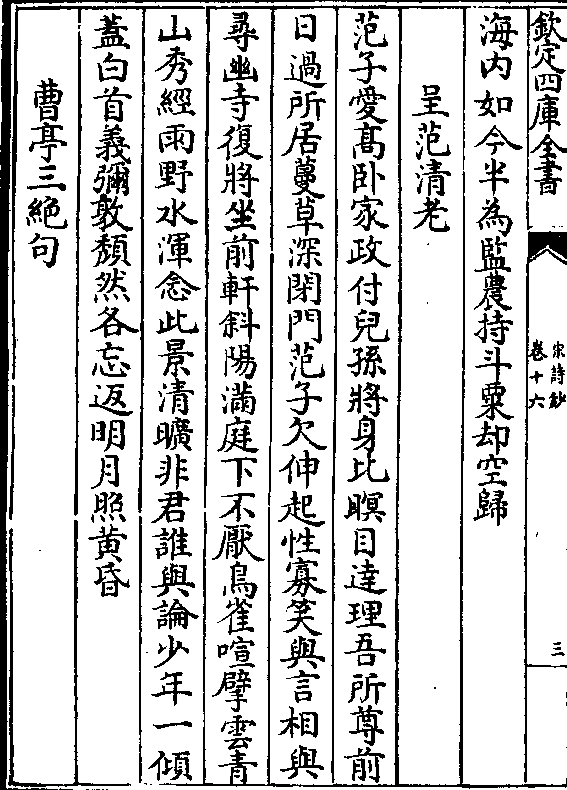 欽定四庫全書
宋詩鈔
卷十六
三
海内如今半為監農持斗粟却空歸
呈范清老
范子愛髙卧家政付兒孫將身比瞑目逹理吾所尊前
日過所居蔓草深閉門范子欠伸起性寡笑與言相與
尋幽寺復將坐前軒斜陽滿庭下不厭鳥雀喧擘雲青
山秀經雨野水渾念此景清曠非君誰與論少年一傾
蓋白首義彌敦頽然各忘返明月照黄昏
曹亭三絶句